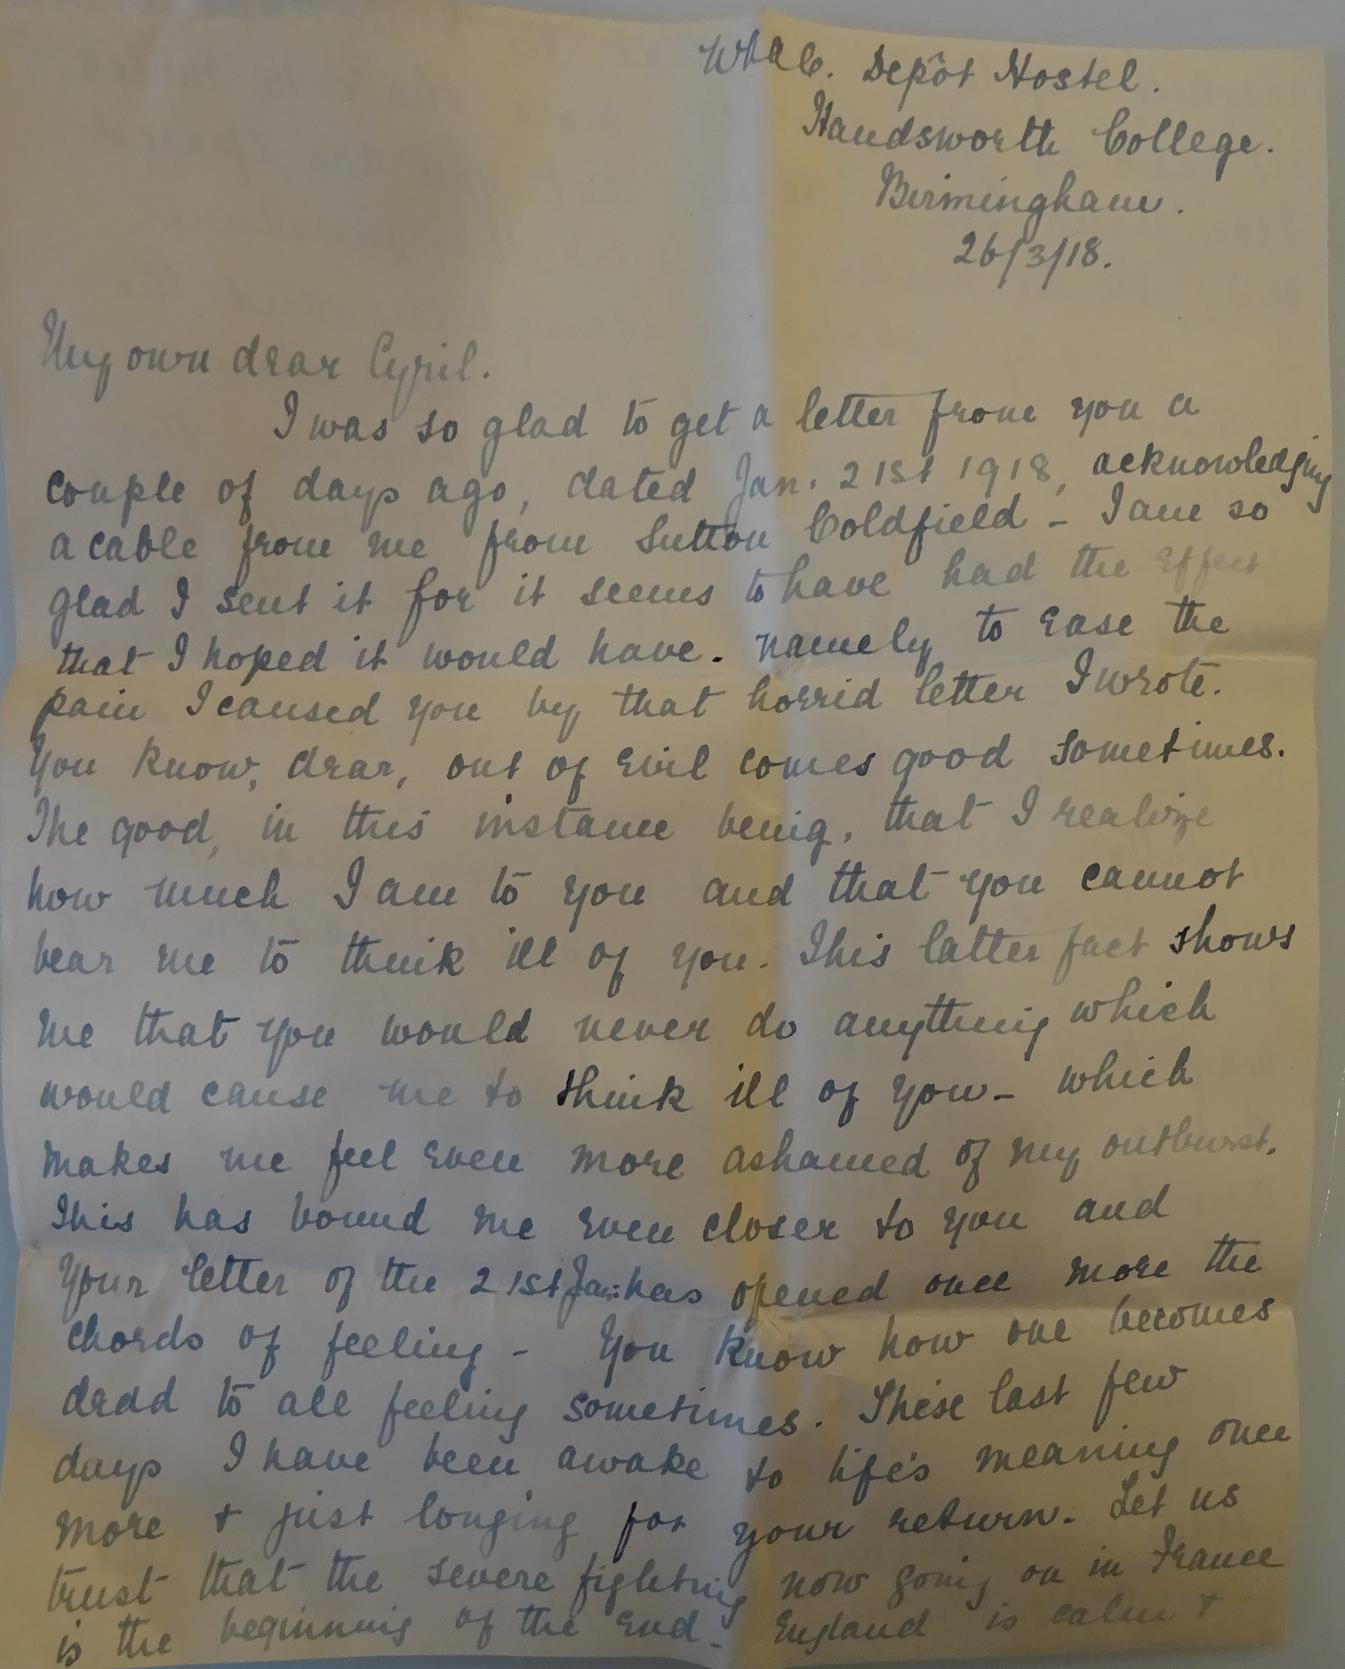 WAAC. Depôt Hostel.
Handsworth College.
Birmingham.
26/3/18.
My own dear Cyril.
I was so glad to get a letter from you a
couple of days ago, dated Jan. 21st 1918, acknowledging
a cable from me from Sutton Coldfield - I am so
glad I sent it for it seems to have had the effect
that I hoped it would have. namely to ease the
pain I caused you by that horrid letter I wrote.
You know, dear, out of evil comes good sometimes.
The good, in this instance being, that I realize
how much I am to you and that you cannot
bear me to think ill of you. This latter fact shows
me that you would never do anything which
would cause me to think ill of you - which
makes me feel even more ashamed of my outburst.
This has bound me even closer to you and
your letter of the 21st Jan: has opened once more the
chords of feeling - You know how one becomes
dead to all feeling sometimes. These last few
days I have been awake to life's meaning once
more + just longing for your return. Let us
trust that the severe fighting now going on in France
is the beginning of the end - England is calm +